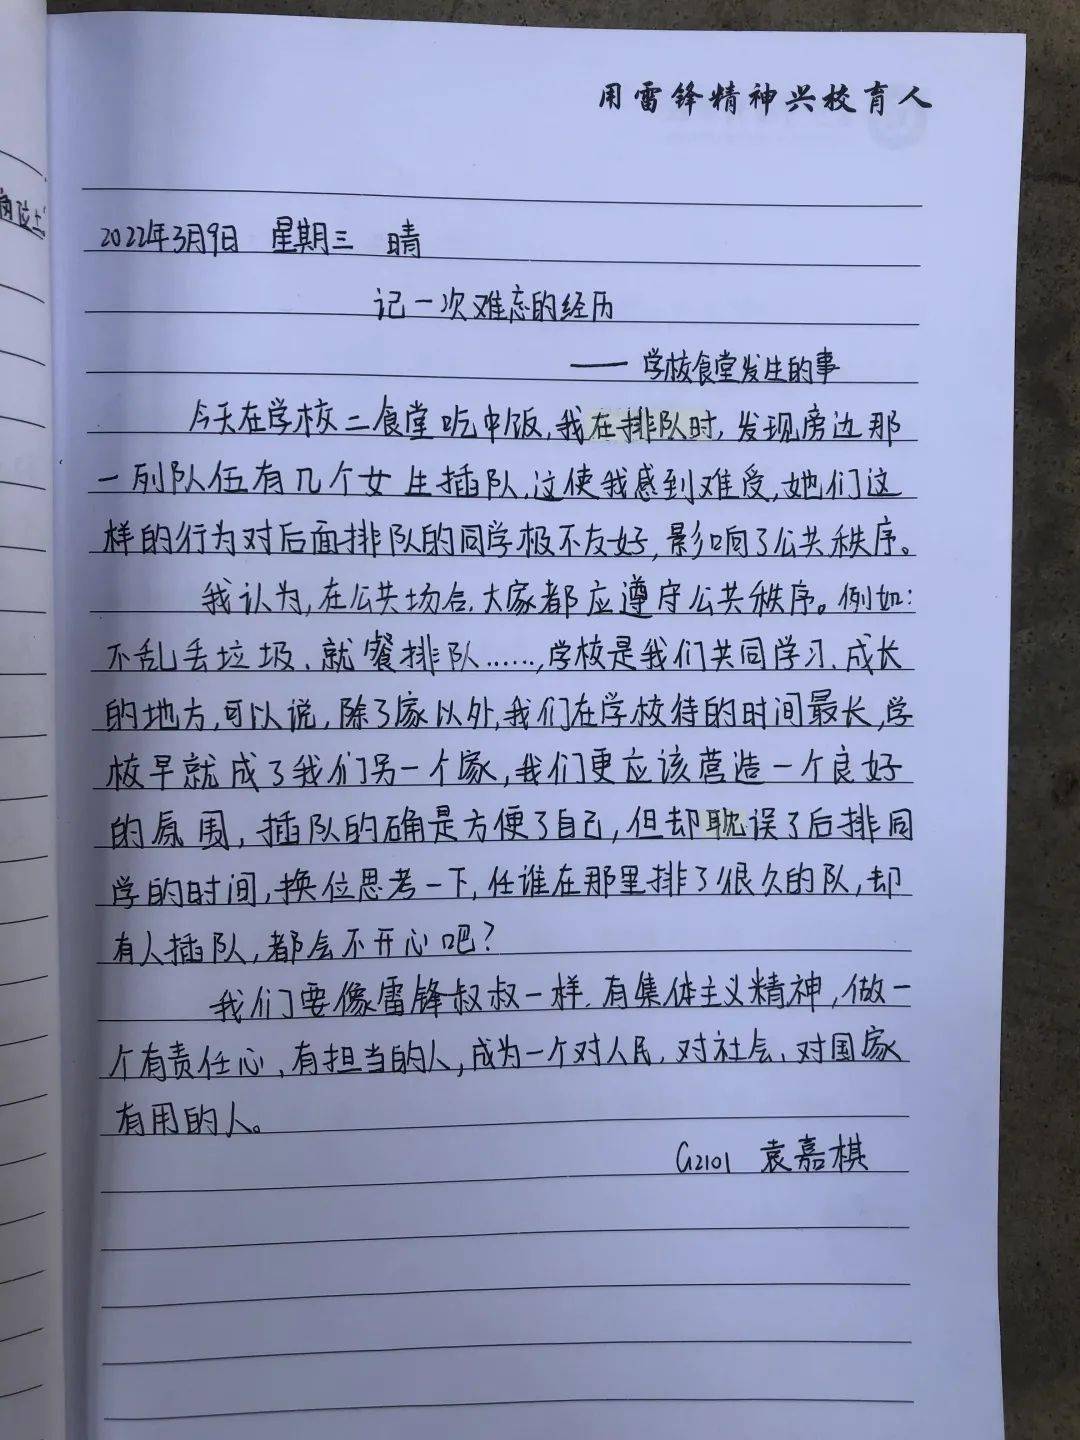 用雷锋精神兴校育人
2022年3月9日 星期三 晴
记一次难忘的经历
——学校食堂发生的事
今天在学校二食堂吃中饭,我在排队时,发现旁边那
一列队伍有几个女生插队,这使我感到难受,她们这
样的行为对后面排队的同学极不友好,影响了公共秩序。
我认为,在公共场合,大家都应遵守公共秩序。例如:
不乱丢垃圾、就餐排队……,学校是我们共同学习、成长
的地方,可以说,除了家以外,我们在学校待的时间最长,学
校早就成了我们另一个家,我们更应该营造一个良好
的氛围,插队的确是方便了自己,但却耽误了后排同
学的时间,换位思考一下,任谁在那里排了很久的队,却
有人插队,都会不开心吧?
我们要像雷锋叔叔一样,有集体主义精神,做一
个有责任心、有担当的人,成为一个对人民、对社会、对国家
有用的人。
G2101 袁嘉棋